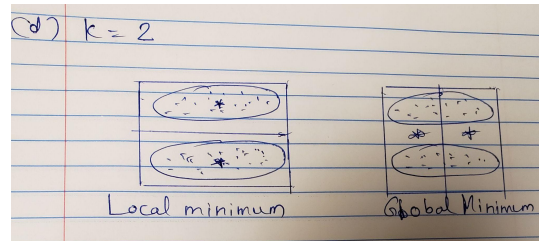 (d) k = 2
Local minimum
Global Minimum